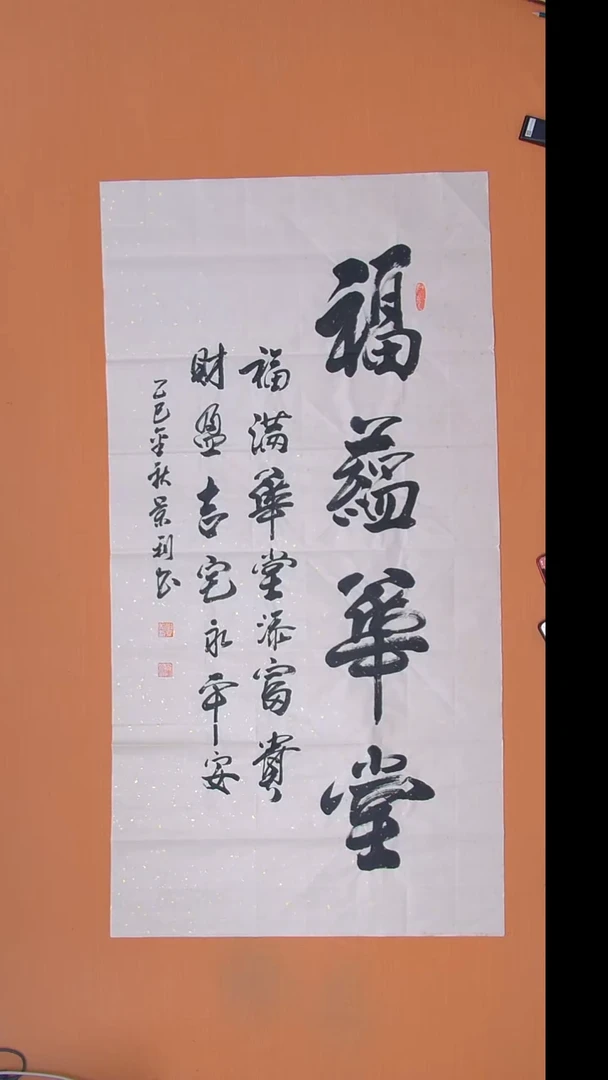 福蘊華堂
福滿華堂添富貴
財盈吉宅永平安
乙巳金秋景利書